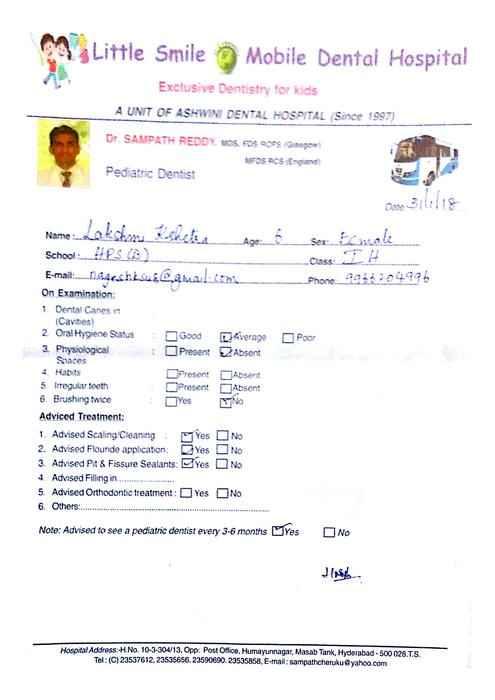 Little Smile Mobile Dental Hospital
Exclusive Dentistry for kids
A UNIT OF ASHWINI DENTAL HOSPITAL (Since 1997)
Dr. SAMPATH REDDY, MDS, FDS RCPS (Glasgow)
MFDS RCS (England)
Pediatric Dentist
Date 31/1/18
Name: Lakshmi Age: 6 Sex: Female
School: HPS (B) Class: I H
E-mail: @gmail.com Phone: 9966204996
On Examination:
1. Dental Caries in
(Cavities)
2. Oral Hygiene Status : Good Average Poor
3. Physiological : Present Absent
Spaces
4. Habits Present Absent
5. Irregular teeth Present Absent
6. Brushing twice Yes No
Adviced Treatment:
1. Advised Scaling/Cleaning : Yes No
2. Advised Flouride application: Yes No
3. Advised Pit & Fissure Sealants: Yes No
4. Advised Filling in....................
5. Advised Orthodontic treatment : Yes No
6. Others:..............................................................
Note: Advised to see a pediatric dentist every 3-6 months Yes No
Hospital Address:-H.No. 10-3-304/13, Opp: Post Office, Humayunnagar, Masab Tank, Hyderabad - 500 028.T.S.
Tel : (C) 23537612, 23535656, 23590690. 23535858, E-mail : sampathcheruku@yahoo.com